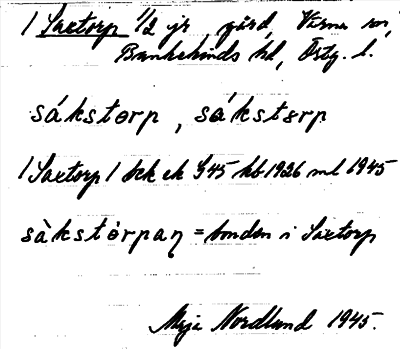 1 Saxtorp 1/2 jr, gård, Värna sn,
Bankekinds hd, Östg. l.
sákstørp, sákstørp
1 Saxtorp 1 bek ek 545 kb 1926 ml 1945
sàkstórpaη = bonden i Saxtorp
Maja Nordlund 1945.